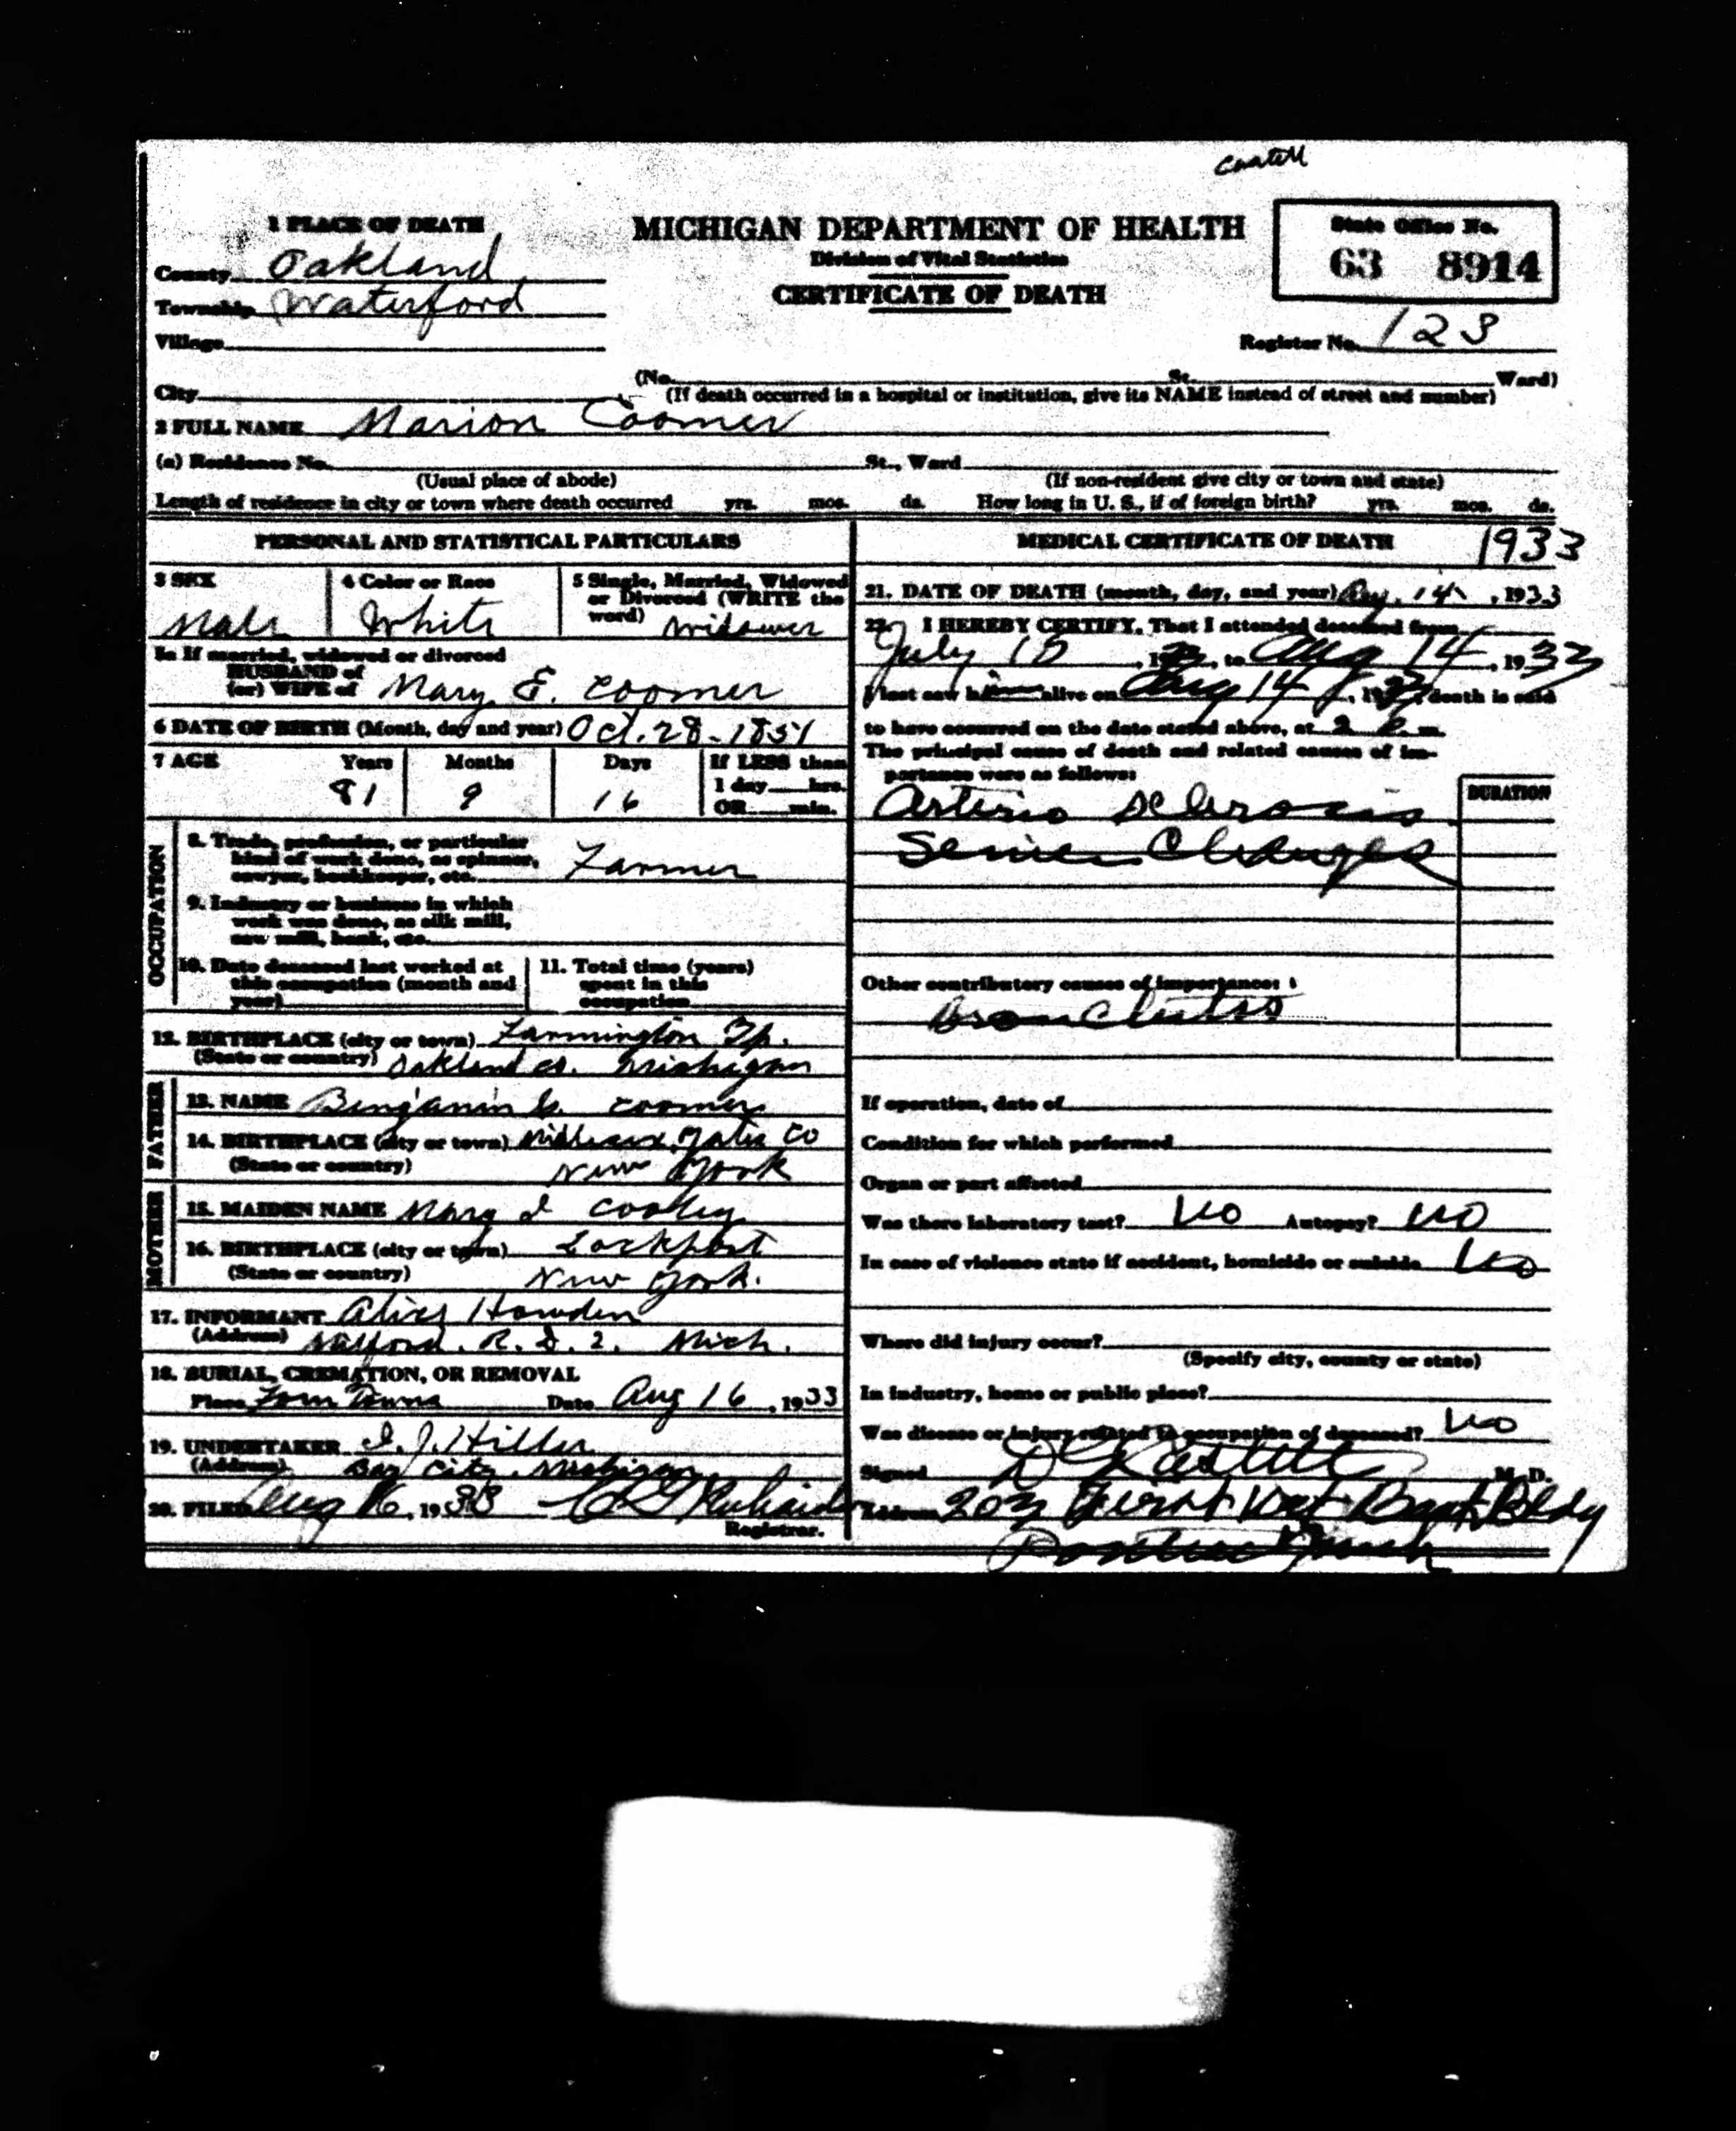 1 PLACE OF DEATH
County Oakland
Township Waterford
Village
City
MICHIGAN DEPARTMENT OF HEALTH
Division of Vital Statistics
CERTIFICATE OF DEATH
State Office No.
63 8914
Register No. 123
(No. St. Ward)
(If death occurred in a hospital or institution, give its NAME instead of street and number)
2 FULL NAME Marion Coomer
(a) Residence No. St., Ward
(Usual place of abode) (If non-resident give city or town and state)
Length of residence in city or town where death occurred yrs. mos. ds. How long in U. S., if of foreign birth? yrs. mos. ds.
PERSONAL AND STATISTICAL PARTICULARS
3 SEX
Male
4 Color or Race
White
5 Single, Married, Widowed
or Divorced (WRITE the
word) Widower
5a If married, widowed or divorced
HUSBAND of
(or) WIFE of Mary E. Coomer
6 DATE OF BIRTH (Month, day and year) Oct. 28-1851
7 AGE Years Months Days If LESS than
1 day hrs.
81 9 16 OR min.
OCCUPATION
8. Trade, profession, or particular
kind of work done, as spinner,
sawyer, bookkeeper, etc. Farmer
9. Industry or business in which
work was done, as silk mill,
saw mill, bank, etc.
10. Date deceased last worked at
this occupation (month and
year)
11. Total time (years)
spent in this
occupation
12. BIRTHPLACE (city or town) Farmington Tp.
(State or country) Oakland Co. Michigan
FATHER
13. NAME Benjamin Coomer
14. BIRTHPLACE (city or town) Yates Co
(State or country) New York
MOTHER
15. MAIDEN NAME Mary Cooley
16. BIRTHPLACE (city or town) Lockport
(State or country) New York.
17. INFORMANT Alice Howden
(Address) Milford. R. D. 2. Mich.
18. BURIAL, CREMATION, OR REMOVAL
Place Date Aug 16, 1933
19. UNDERTAKER I. J. Hiller
(Address) Bay City, Michigan
20. FILED Aug 16, 1933
Registrar.
MEDICAL CERTIFICATE OF DEATH 1933
21. DATE OF DEATH (month, day, and year) Aug. 14, 1933
22. I HEREBY CERTIFY, That I attended deceased from
July 18, 1933, to Aug 14, 1933
I last saw him alive on Aug 14, 1933, death is said
to have occurred on the date stated above, at 2 P. m.
The principal cause of death and related causes of im-
portance were as follows:
DURATION
Arterio Sclerosis
Senile Changes
Other contributory causes of importance:
Bronchitis
If operation, date of
Condition for which performed
Organ or part affected
Was there laboratory test? No Autopsy? No
In case of violence state if accident, homicide or suicide No
Where did injury occur?
(Specify city, county or state)
In industry, home or public place?
Was disease or injury related to occupation of deceased? No
Signed M. D.
Address 203 First Nat Bank Bldg
Pontiac Mich